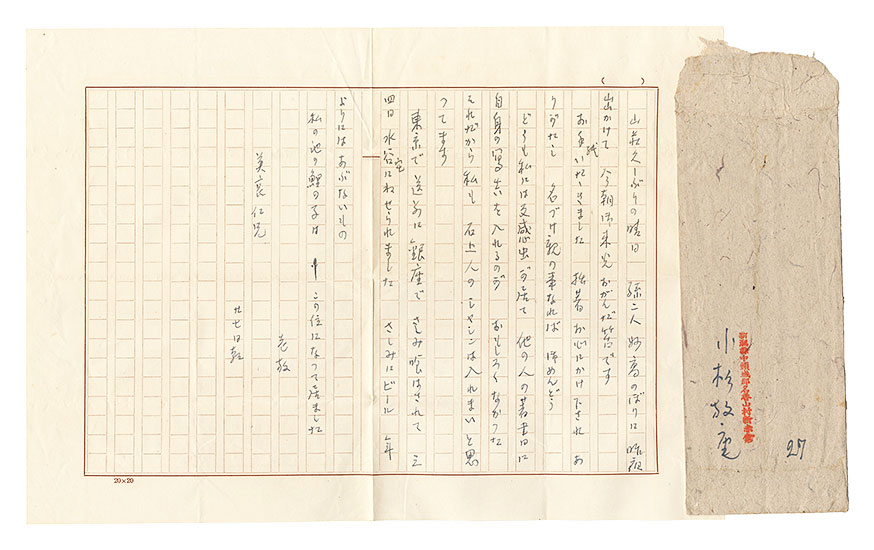 山荘久しぶりの晴日 孫二人妙高のぼりに昨夜
出かけて 今朝御来光おがんだ筈です
お手紙いたゞきました 拙著お心にかけ下され あ
りがたし 名づけ親の事なれば
どうも私には 居て 他の人の著書に
自身の写真を入れるのが おもしろくなかつた
それだから私も 石上人のシャシンは入れまいと思
つてます
東京で 銀座で さしみ喰はされて 三
四日 水谷宅にねせられました さしみにビール 年
よりにはあぶないもの
私の池の鯉の子は この位になつて居ました
老放
仁兄
廿七日朝
20×20
新潟縣中頸城郡名香山村新赤倉
小杉放庵
27